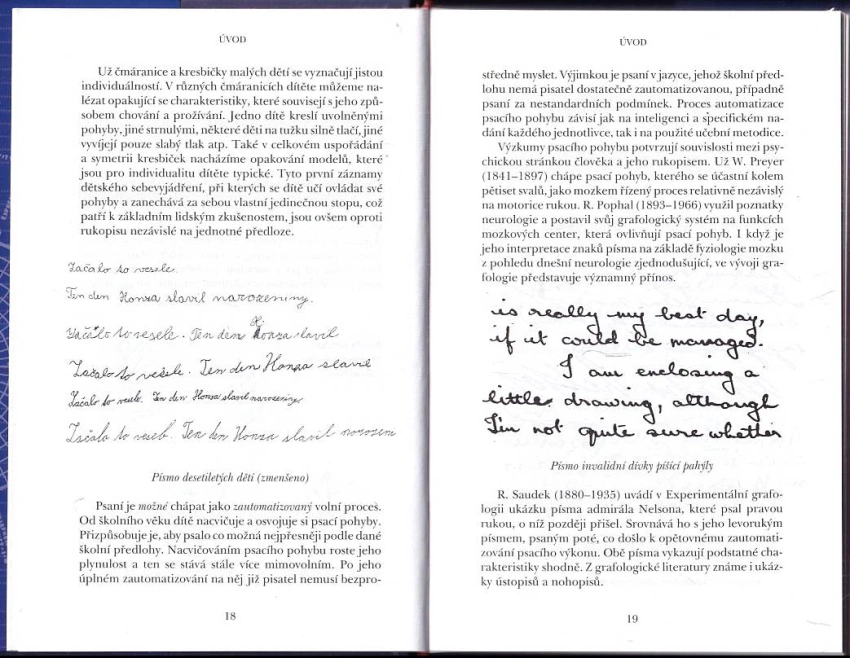 ÚVOD
Už čmáranice a kresbičky malých dětí se vyznačují jistou
individuálností. V různých čmáranicích dítěte můžeme na-
lézat opakující se charakteristiky, které souvisejí s jeho způ-
sobem chování a prožívání. Jedno dítě kreslí uvolněnými
pohyby, jiné strnulými, některé děti na tužku silně tlačí, jiné
vyvíjejí pouze slabý tlak atp. Také v celkovém uspořádání
a symetrii kresbiček nacházíme opakování modelů, které
jsou pro individualitu dítěte typické. Tyto první záznamy
dětského sebevyjádření, při kterých se dítě učí ovládat své
pohyby a zanechává za sebou vlastní jedinečnou stopu, což
patří k základním lidským zkušenostem, jsou ovšem oproti
rukopisu nezávislé na jednotné předloze.
Začalo to vesele.
Ten den Honza slavil narozeniny.
Začalo to vesele. Ten den Honza slavil
Začalo to vesele. Ten den Honza slavil
Začalo to vesele. Ten den Honza slavil narozeniny
Začalo to vesele. Ten den Honza slavil narozeni
Písmo desetiletých dětí (zmenšeno)
Psaní je možné chápat jako zautomatizovaný volní proces.
Od školního věku dítě nacvičuje a osvojuje si psací pohyby.
Přizpůsobuje je, aby psalo co možná nejpřesněji podle dané
školní předlohy. Nacvičováním psacího pohybu roste jeho
plynulost a ten se stává stále více mimovolním. Po jeho
úplném zautomatizování na něj již pisatel nemusí bezpro-
18
ÚVOD
středně myslet. Výjimkou je psaní v jazyce, jehož školní před-
lohu nemá pisatel dostatečně zautomatizovanou, případně
psaní za nestandardních podmínek. Proces automatizace
psacího pohybu závisí jak na inteligenci a specifickém na-
dání každého jednotlivce, tak i na použité učební metodice.
Výzkumy psacího pohybu potvrzují souvislosti mezi psy-
chickou stránkou člověka a jeho rukopisem. Už W. Preyer
(1841–1897) chápe psací pohyb, kterého se účastní kolem
pětiset svalů, jako mozkem řízený proces relativně nezávislý
na motorice rukou. R. Pophal (1893–1966) využil poznatky
neurologie a postavil svůj grafologický systém na funkcích
mozkových center, která ovlivňují psací pohyb. I když je
jeho interpretace znaků písma na základě fyziologie mozku
z pohledu dnešní neurologie zjednodušující, ve vývoji gra-
fologie představuje významný přínos.
is really my best day,
if it could be managed.
I am enclosing a
little drawing, although
I'm not quite sure whether
Písmo invalidní dívky píšící pahýly
R. Saudek (1880–1935) uvádí v Experimentální grafo-
logii ukázku písma admirála Nelsona, které psal pravou
rukou, o níž později přišel. Srovnává ho s jeho levorukým
písmem, psaným poté, co došlo k opětovnému zautomati-
zování psacího výkonu. Obě písma vykazují podstatné cha-
rakteristiky shodně. Z grafologické literatury známe i ukáz-
ky ústopisů a nohopisů.
19